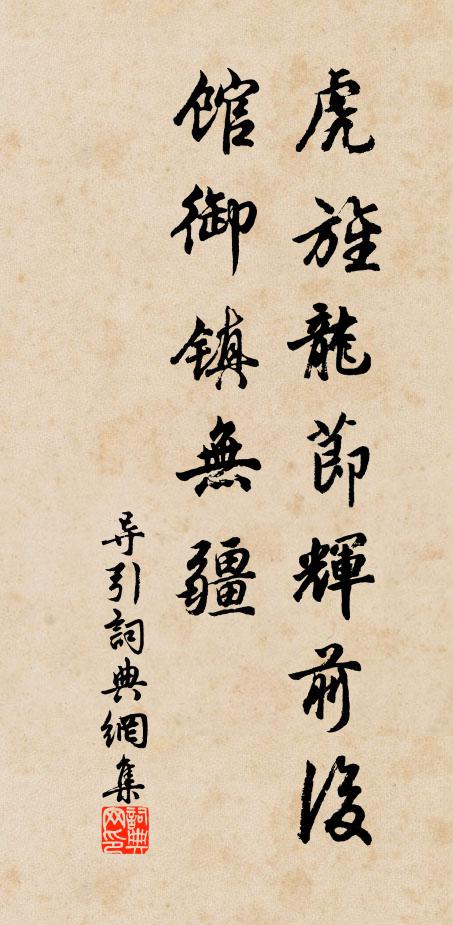 虎旌龍節輝前後
館御鎮無疆
导引詞典網集
詞典
网印